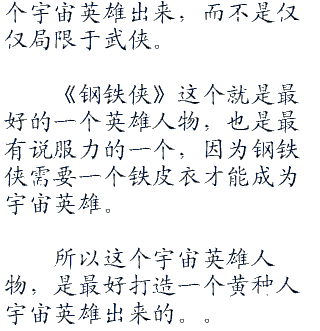 个宇宙英雄出来，而不是仅
仅局限于武侠。
《钢铁侠》这个就是最
好的一个英雄人物，也是最
有说服力的一个，因为钢铁
侠需要一个铁皮衣才能成为
宇宙英雄。
所以这个宇宙英雄人
物，是最好打造一个黄种人
宇宙英雄出来的。。